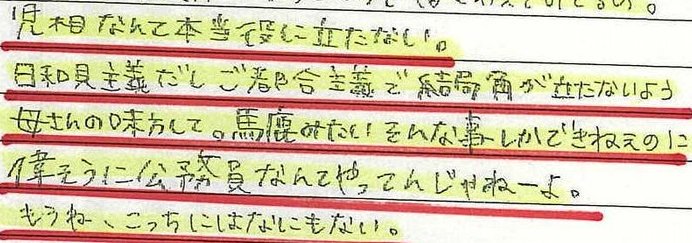 児相なんて本当役に立たない。
日和見主義だしご都合主義で結局角が立たないよう
母さんの味方して。馬鹿みたいそんな事しかできねえのに
偉そうに公務員なんてやってんじゃねーよ。
もうね、こっちにはなにもない。